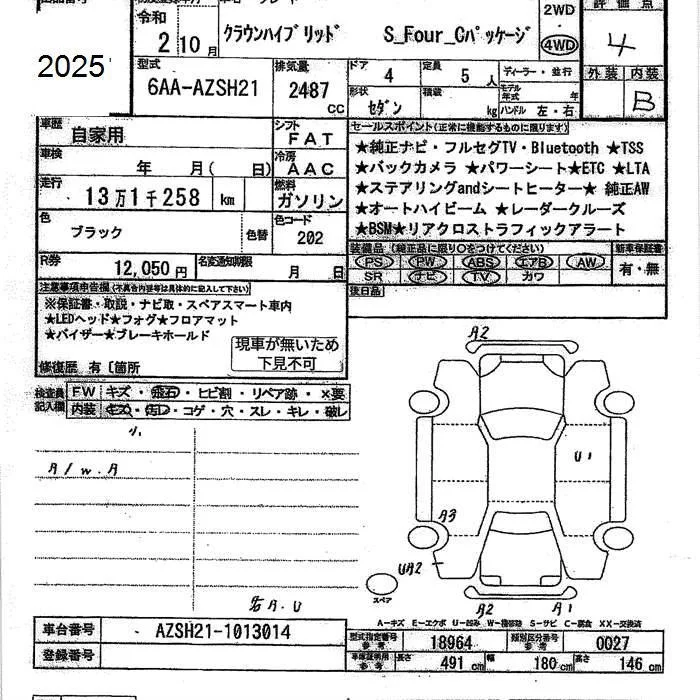 評価点
令和 クラウンハイブリッド S_Four_Cパッケージ 2WD
2 10月 4WD 4
2025 型式 排気量 ドア 4 定員 5 人 ディーラー・並行 外装 内装
6AA-AZSH21 2487 CC 形状 セダン 積載 kg モデル年式 年 B
ハンドル 左・右
車歴 自家用 シフト FAT セールスポイント(正常に機能するものに限ります)
車検 年 月( 日) 冷房 AAC ★純正ナビ・フルセグTV・Bluetooth ★TSS
走行 13万1千258 km 燃料 ガソリン ★バックカメラ ★パワーシート★ETC ★LTA
色 ブラック 色替 色コード 202 ★ステアリングandシートヒーター★ 純正AW
★オートハイビーム ★レーダークルーズ
★BSM★リアクロストラフィックアラート
R券 12,050円 名変通知期限 月 日 装備品 (純正品に限り○をつけてください) 新車保証書
PS PW ABS エアB AW 有・無
SR ナビ TV カワ
注意事項申告欄(不具合内容等は具体的に記入して下さい) 後日品
※保証書・取説・ナビ取・スペアスマート車内
★LEDヘッド★フォグ★フロアマット
★バイザー★ブレーキホールド
現車が無いため
下見不可
修復歴 有〔箇所
検査員記入欄 FW キズ・飛石・ヒビ割・リペア跡・×要
内装 キズ・汚レ・コゲ・穴・スレ・キレ・破レ
A/W.A
A2
U1
A3
UA2
スペア
A2 A1
A.U
A-キズ E-エクボ U-凹み W-補修跡 S-サビ C-腐食 XX-交換済
車台番号 AZSH21-1013014 型式指定番号 参考 18964 類別区分番号 参考 0027
登録番号 車体証明用 参考 長さ 491 cm 幅 180 cm 高さ 146 cm